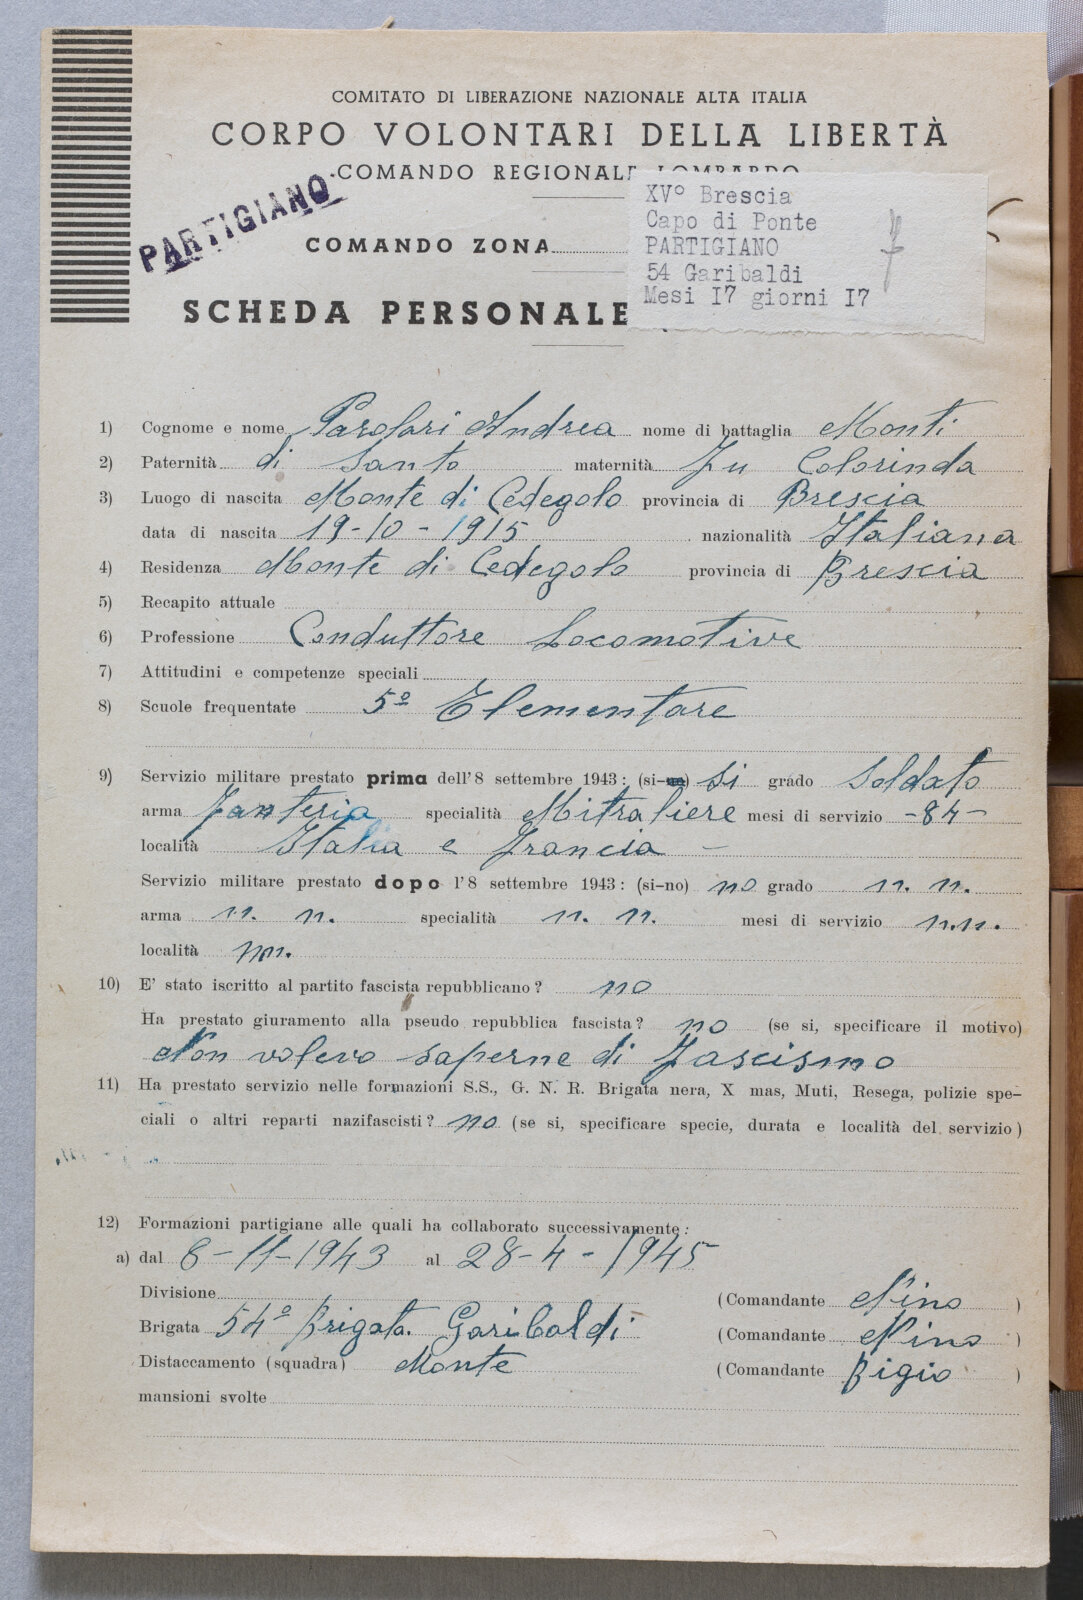 COMITATO DI LIBERAZIONE NAZIONALE ALTA ITALIA
CORPO VOLONTARI DELLA LIBERTÀ
COMANDO REGIONALE LOMBARDO
PARTIGIANO
XV° Brescia
Capo di Ponte
PARTIGIANO
54 Garibaldi
Mesi I7 giorni I7
COMANDO ZONA
SCHEDA PERSONALE
1) Cognome e nome Parolari Andrea nome di battaglia Monti
2) Paternità di Santo maternità fu Colorinda
3) Luogo di nascita Monte di Cedegolo provincia di Brescia
data di nascita 19-10-1915 nazionalità Italiana
4) Residenza Monte di Cedegolo provincia di Brescia
5) Recapito attuale
6) Professione Conduttore Locomotive
7) Attitudini e competenze speciali
8) Scuole frequentate 5ª Elementare
9) Servizio militare prestato prima dell'8 settembre 1943: (si-no) si grado Soldato
arma fanteria specialità Mitraliere mesi di servizio -84-
località Italia e Francia -
Servizio militare prestato dopo l'8 settembre 1943: (si-no) no grado n. n.
arma n. n. specialità n. n. mesi di servizio n.n.
località nn.
10) E' stato iscritto al partito fascista repubblicano? no
Ha prestato giuramento alla pseudo repubblica fascista? no (se si, specificare il motivo)
Non volevo saperne di fascismo
11) Ha prestato servizio nelle formazioni S.S., G. N. R. Brigata nera, X mas, Muti, Resega, polizie spe-
ciali o altri reparti nazifascisti? no (se si, specificare specie, durata e località del servizio)
12) Formazioni partigiane alle quali ha collaborato successivamente:
a) dal 8-11-1943 al 28-4-1945
Divisione (Comandante Nino )
Brigata 54ª Brigata Garibaldi (Comandante Nino )
Distaccamento (squadra) Monte (Comandante Bigio )
mansioni svolte